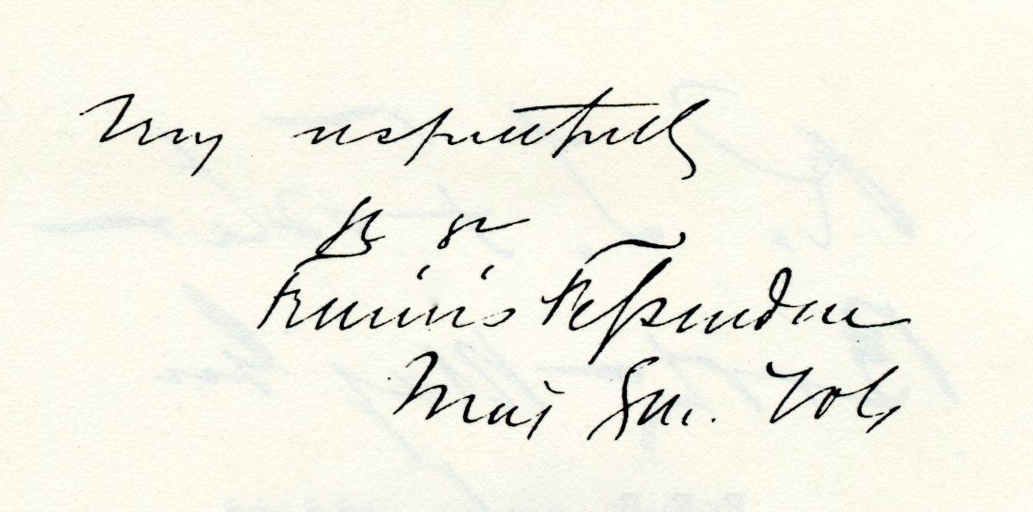 Very respectfully
Yr sr
Francis Fessenden
Maj Gen. Vols